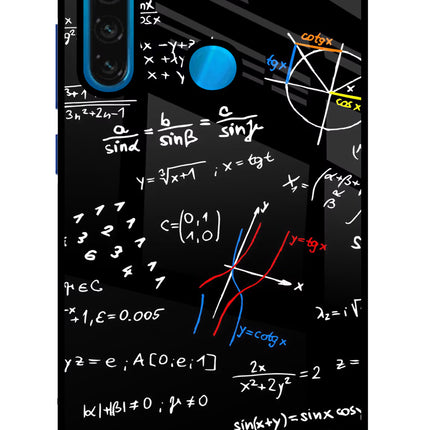 x/y²
nx
2sx
x - y + ?
x + λy
x + y
cotgx
tgx
x
cosx
3+1
3n²+2n-1
a/sinα = b/sinβ = c/sinγ
y = ³√x+1 ; x = tgt
X₁ = (α+β+
β α
1 1 1
3 2 1
6 3 1
4 1
1
C = (0,1
1,0)
y
y=tgx
x
y=cotgx
∈C
-x+1, ε = 0.005
λ₂ = i√
yz = e ; A[0;e;1]
2x/x²+2y² = 2 z =
|α|+|β| ≠ 0 ; γ ≠ 0
sin(x+y) = sinx cosy